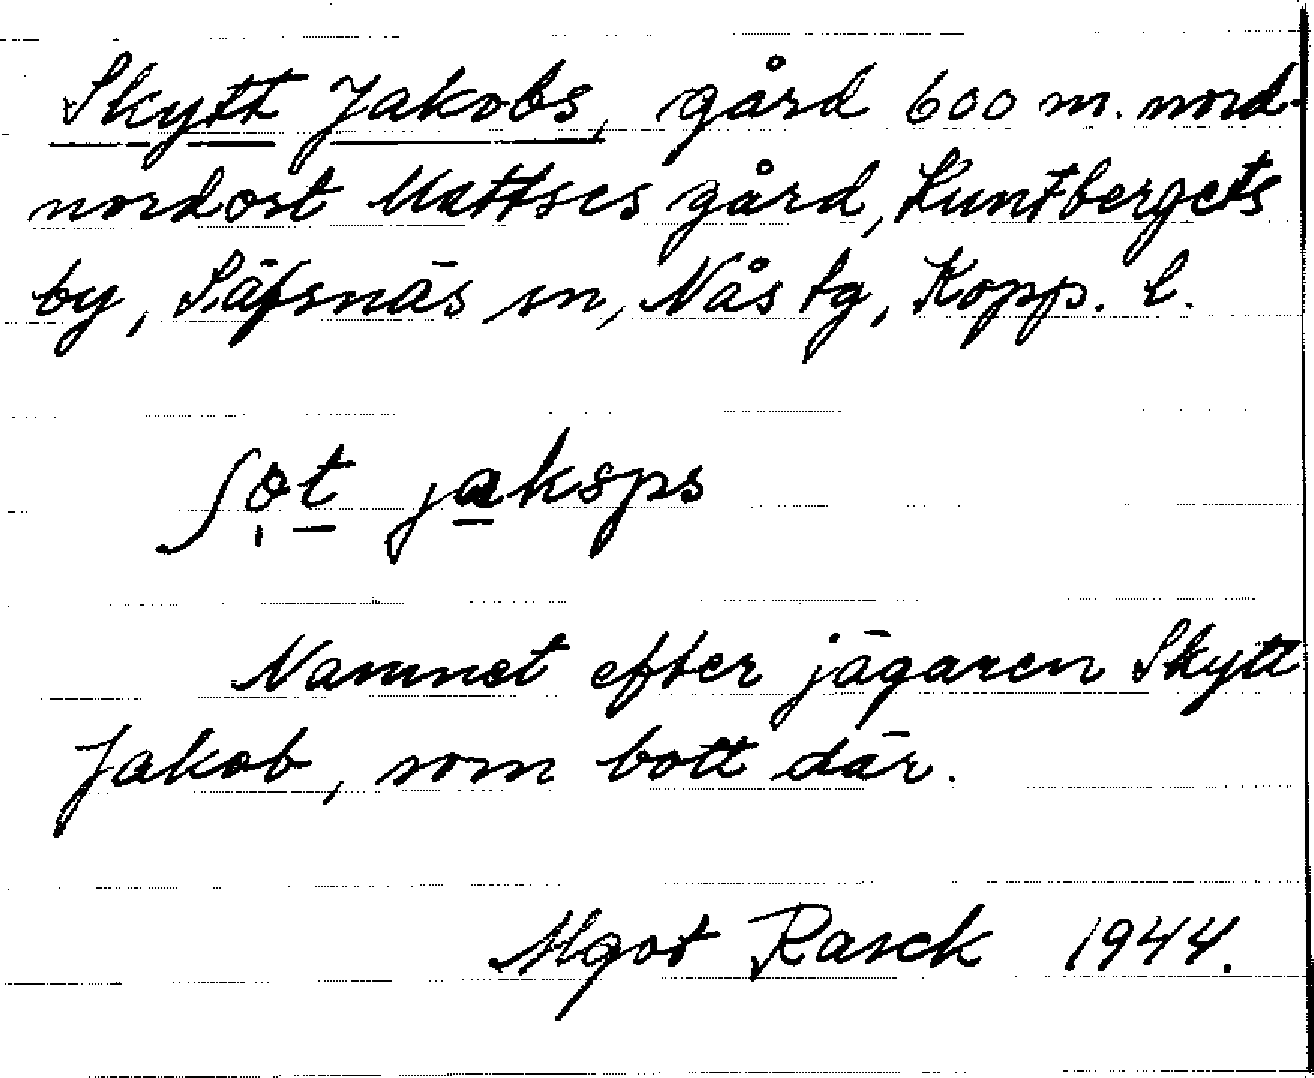 Skytt Jakobs, gård 600 m. nord-
nordost Mattses gård, Luntbergets
by, Säfsnäs sn, Nås tg, Kopp. l.
jaksps
Namnet efter jägaren Skytt
Jakob, som bott där.
Mgot Rasck 1944.